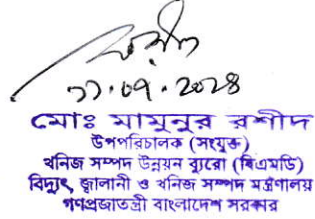 ১১.০৭.২০২৪
মোঃ মামুনুর রশীদ
উপপরিচালক (সংযুক্ত)
খনিজ সম্পদ উন্নয়ন ব্যুরো (বিএমডি)
বিদ্যুৎ, জ্বালানী ও খনিজ সম্পদ মন্ত্রণালয়
গণপ্রজাতন্ত্রী বাংলাদেশ সরকার